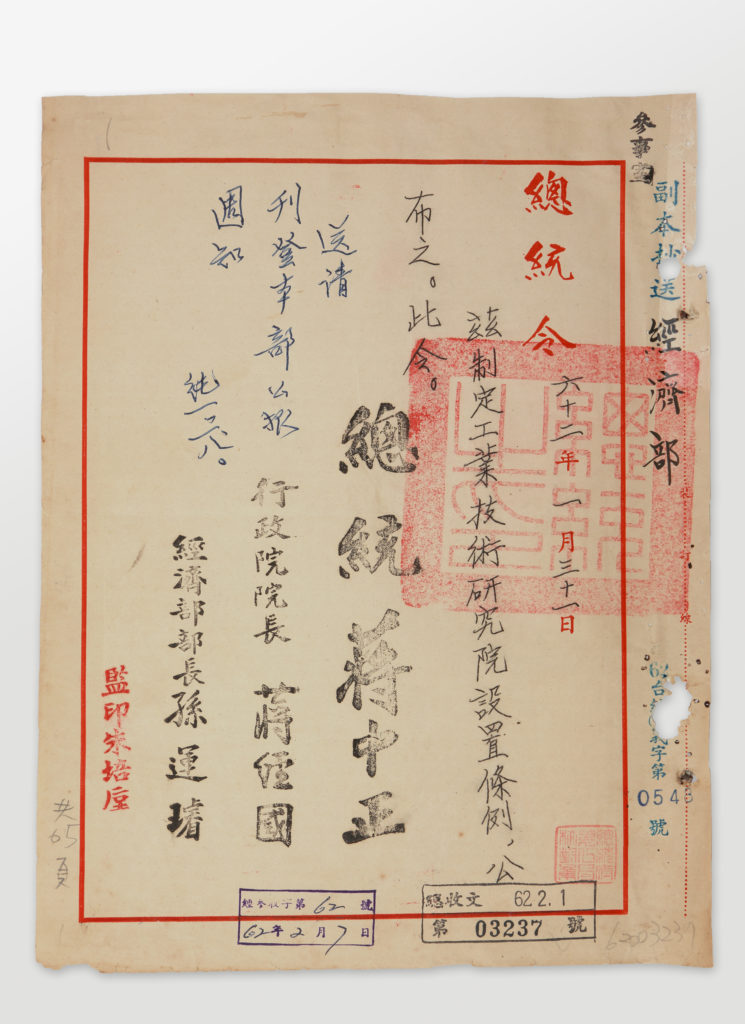 參事室
副本抄送
經濟部
總統令
六十二年一月三十一日
茲制定工業技術研究院設置條例，公
布之。此令。
總統 蔣中正
行政院院長 蔣經國
經濟部部長 孫運璿
送請
刊登本部公報
週知
監印朱培垕
共65頁
字第
0546
號
總收文 62.2.1
第 03237 號
經參收字第 62 號
62年2月7日
62003237